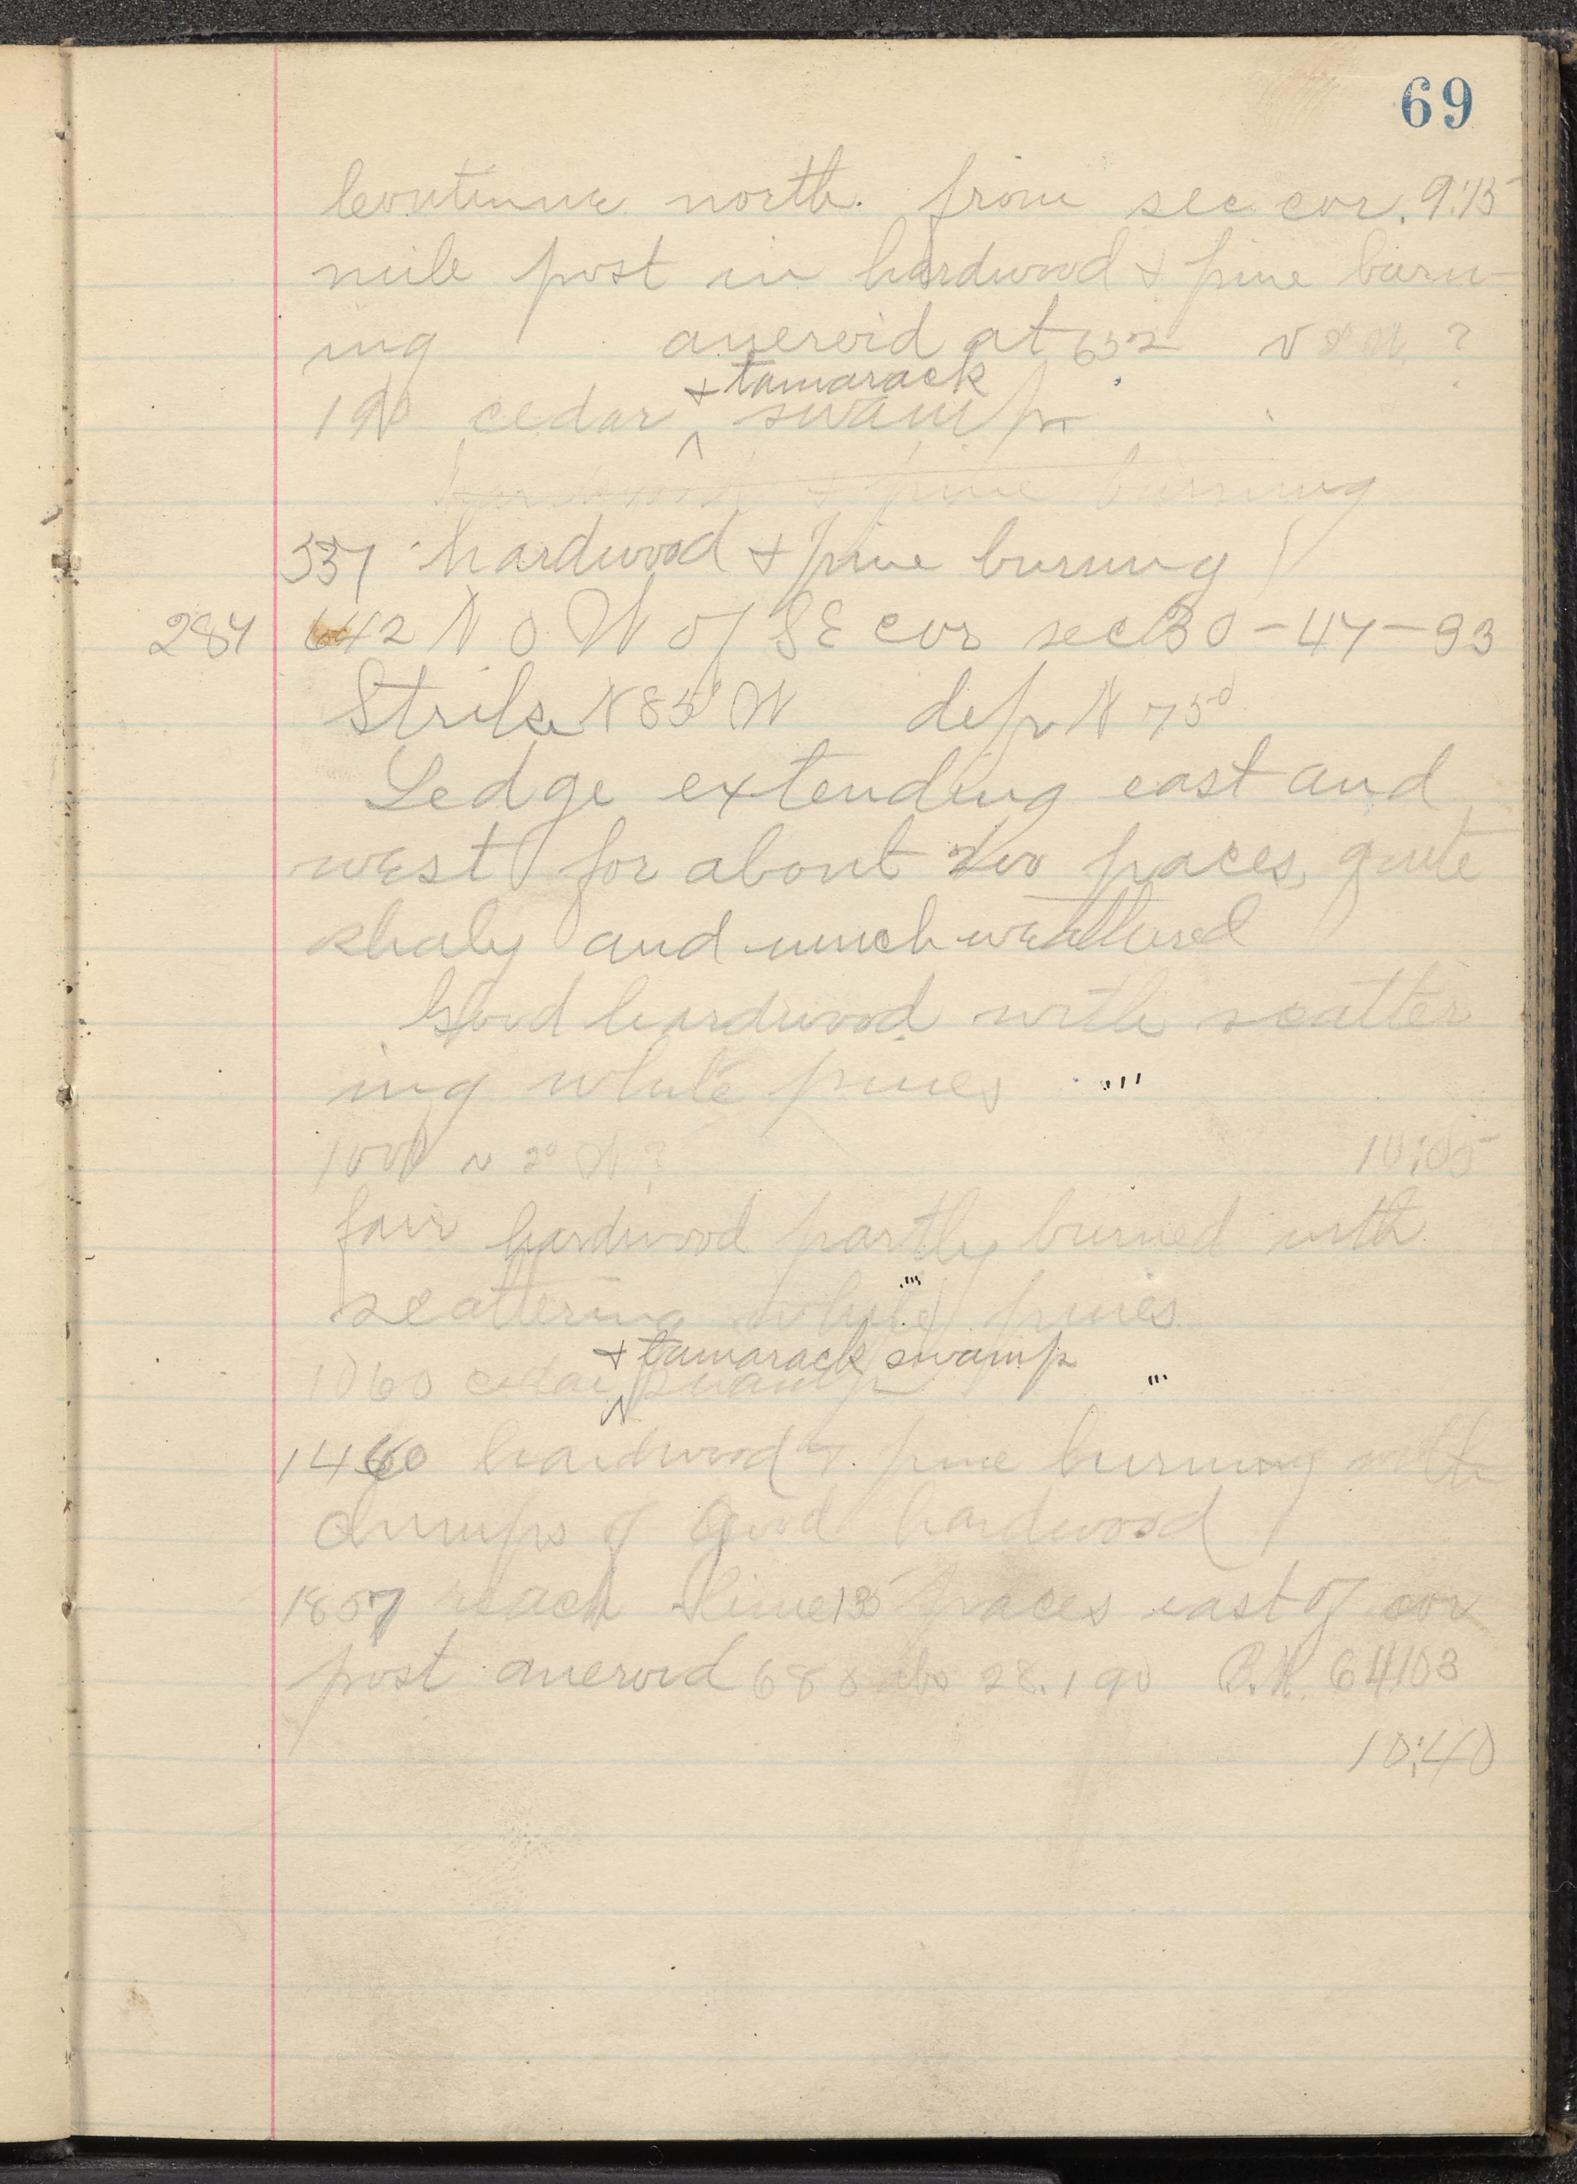 69
Continue north. from sec cor. 9:15
mile post in hardwood & pine burn-
ing aneroid at 632 N 8° W. ?
190 cedar & tamarack swamp
hardwood & pine burning
337 hardwood & pine burning
287 642 N 0 W of SE cor sec 30-47-33
Strike N 85° W dip N 75°
Ledge extending east and
west for about 200 paces, quite
shaly and much weathered
Good hardwood with scatter
ing white pines "'
1000 N 2° W ? 10:05
fair hardwood partly burned with
scattering white "' pines
1060 cedar & tamarack swamp swamp "'
1460 hardwood & pine burning with
clumps of good hardwood
1857 reach line 135 paces east of cor
post aneroid 688 abs 28.190 B.H. 64103
10:40